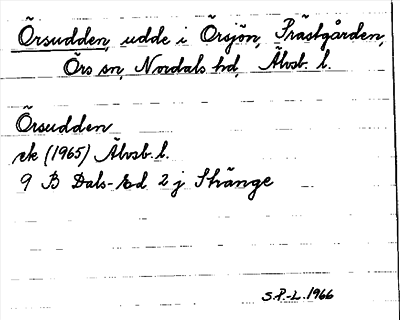 Örsudden, udde i Örsjön, Prästgården,
Örs sn, Nordals hd, Älvsb. l.
Örsudden
ek (1965) Älvsb. l.
9 B Dals-Ed 2 j Skänge
S.P.-L. 1966